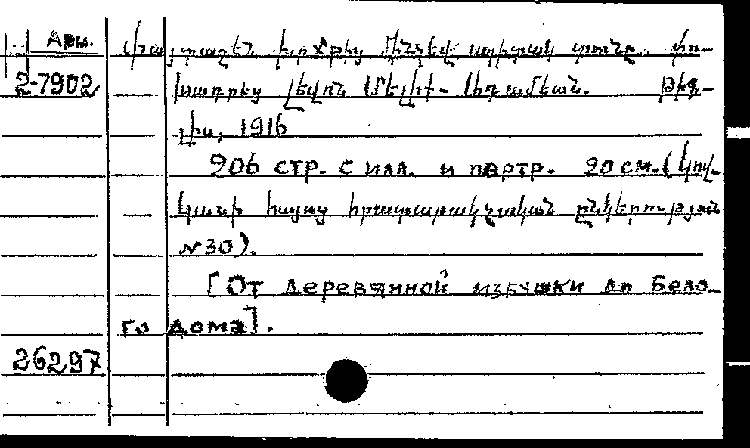 Арм. Փայտաշեն խրճիթից մինչև սպիտակ տունը. փո-
2-7902 խադրեց Լեվոն Մելիք-Ադամեան. Թիֆ-
լիս, 1916
206 стр. с илл. и портр. 20 см. (Կով-
կասի հայոց հրատարակչական ընկերութիւն
№30).
[От деревянной избушки до Бело-
го дома].
26297